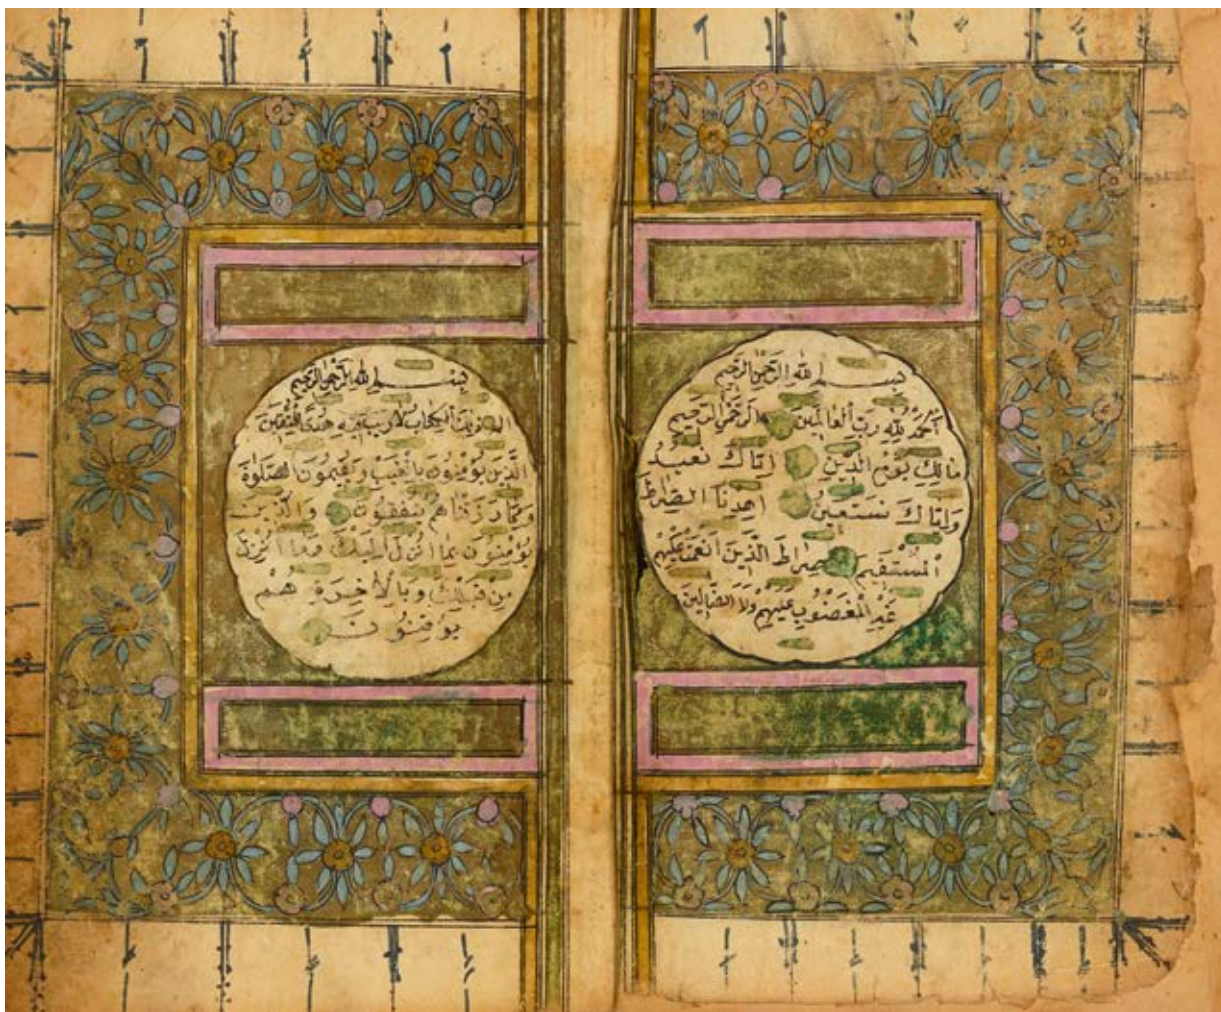 بسم الله الرحمن الرحيم
الحمد لله رب العالمين الرحمن الرحيم
مالك يوم الدين اياك نعبد
واياك نستعين اهدنا الصراط
المستقيم صراط الذين انعمت عليهم
غير المغضوب عليهم ولا الضالين
بسم الله الرحمن الرحيم
الم ذلك الكتاب لا ريب فيه هدى للمتقين
الذين يؤمنون بالغيب ويقيمون الصلوة
ومما رزقناهم ينفقون والذين
يؤمنون بما انزل اليك وما انزل
من قبلك وبالاخرة هم
يوقنون